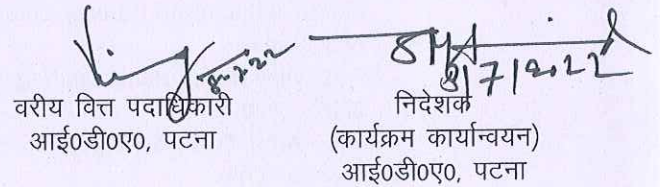 वरीय वित्त पदाधिकारी
आई0डी0ए0, पटना
निदेशक
(कार्यक्रम कार्यान्वयन)
आई0डी0ए0, पटना